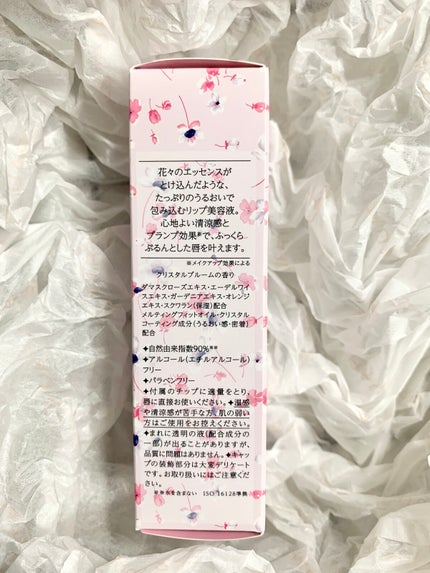 花々のエッセンスが
とけ込んだような、
たっぷりのうるおいで
包み込むリップ美容液。
心地よい清涼感と
プランプ効果※で、ふっくら
ぷるんとした唇を叶えます。
※メイクアップ効果による
クリスタルブルームの香り
ダマスクローズエキス・エーデルワイ
スエキス・ガーデニアエキス・オレンジ
エキス・スクワラン(保湿)配合
メルティングフィットオイル・クリスタル
コーティング成分(うるおい感・密着)
配合
✦自然由来指数90%※※
✦アルコール(エチルアルコール)
フリー
✦パラベンフリー
✦付属のチップに適量をとり、
唇に直接お使いください。✦温感
や清涼感が苦手な方、肌の弱い
方はご使用をお控えください。
✦まれに透明の液(配合成分の
一部)が出ることがありますが、
品質に問題はありません。✦キャッ
プの装飾部分は大変デリケート
です。お取り扱いにはご注意くだ
さい。
※※水を含まない ISO 16128準拠